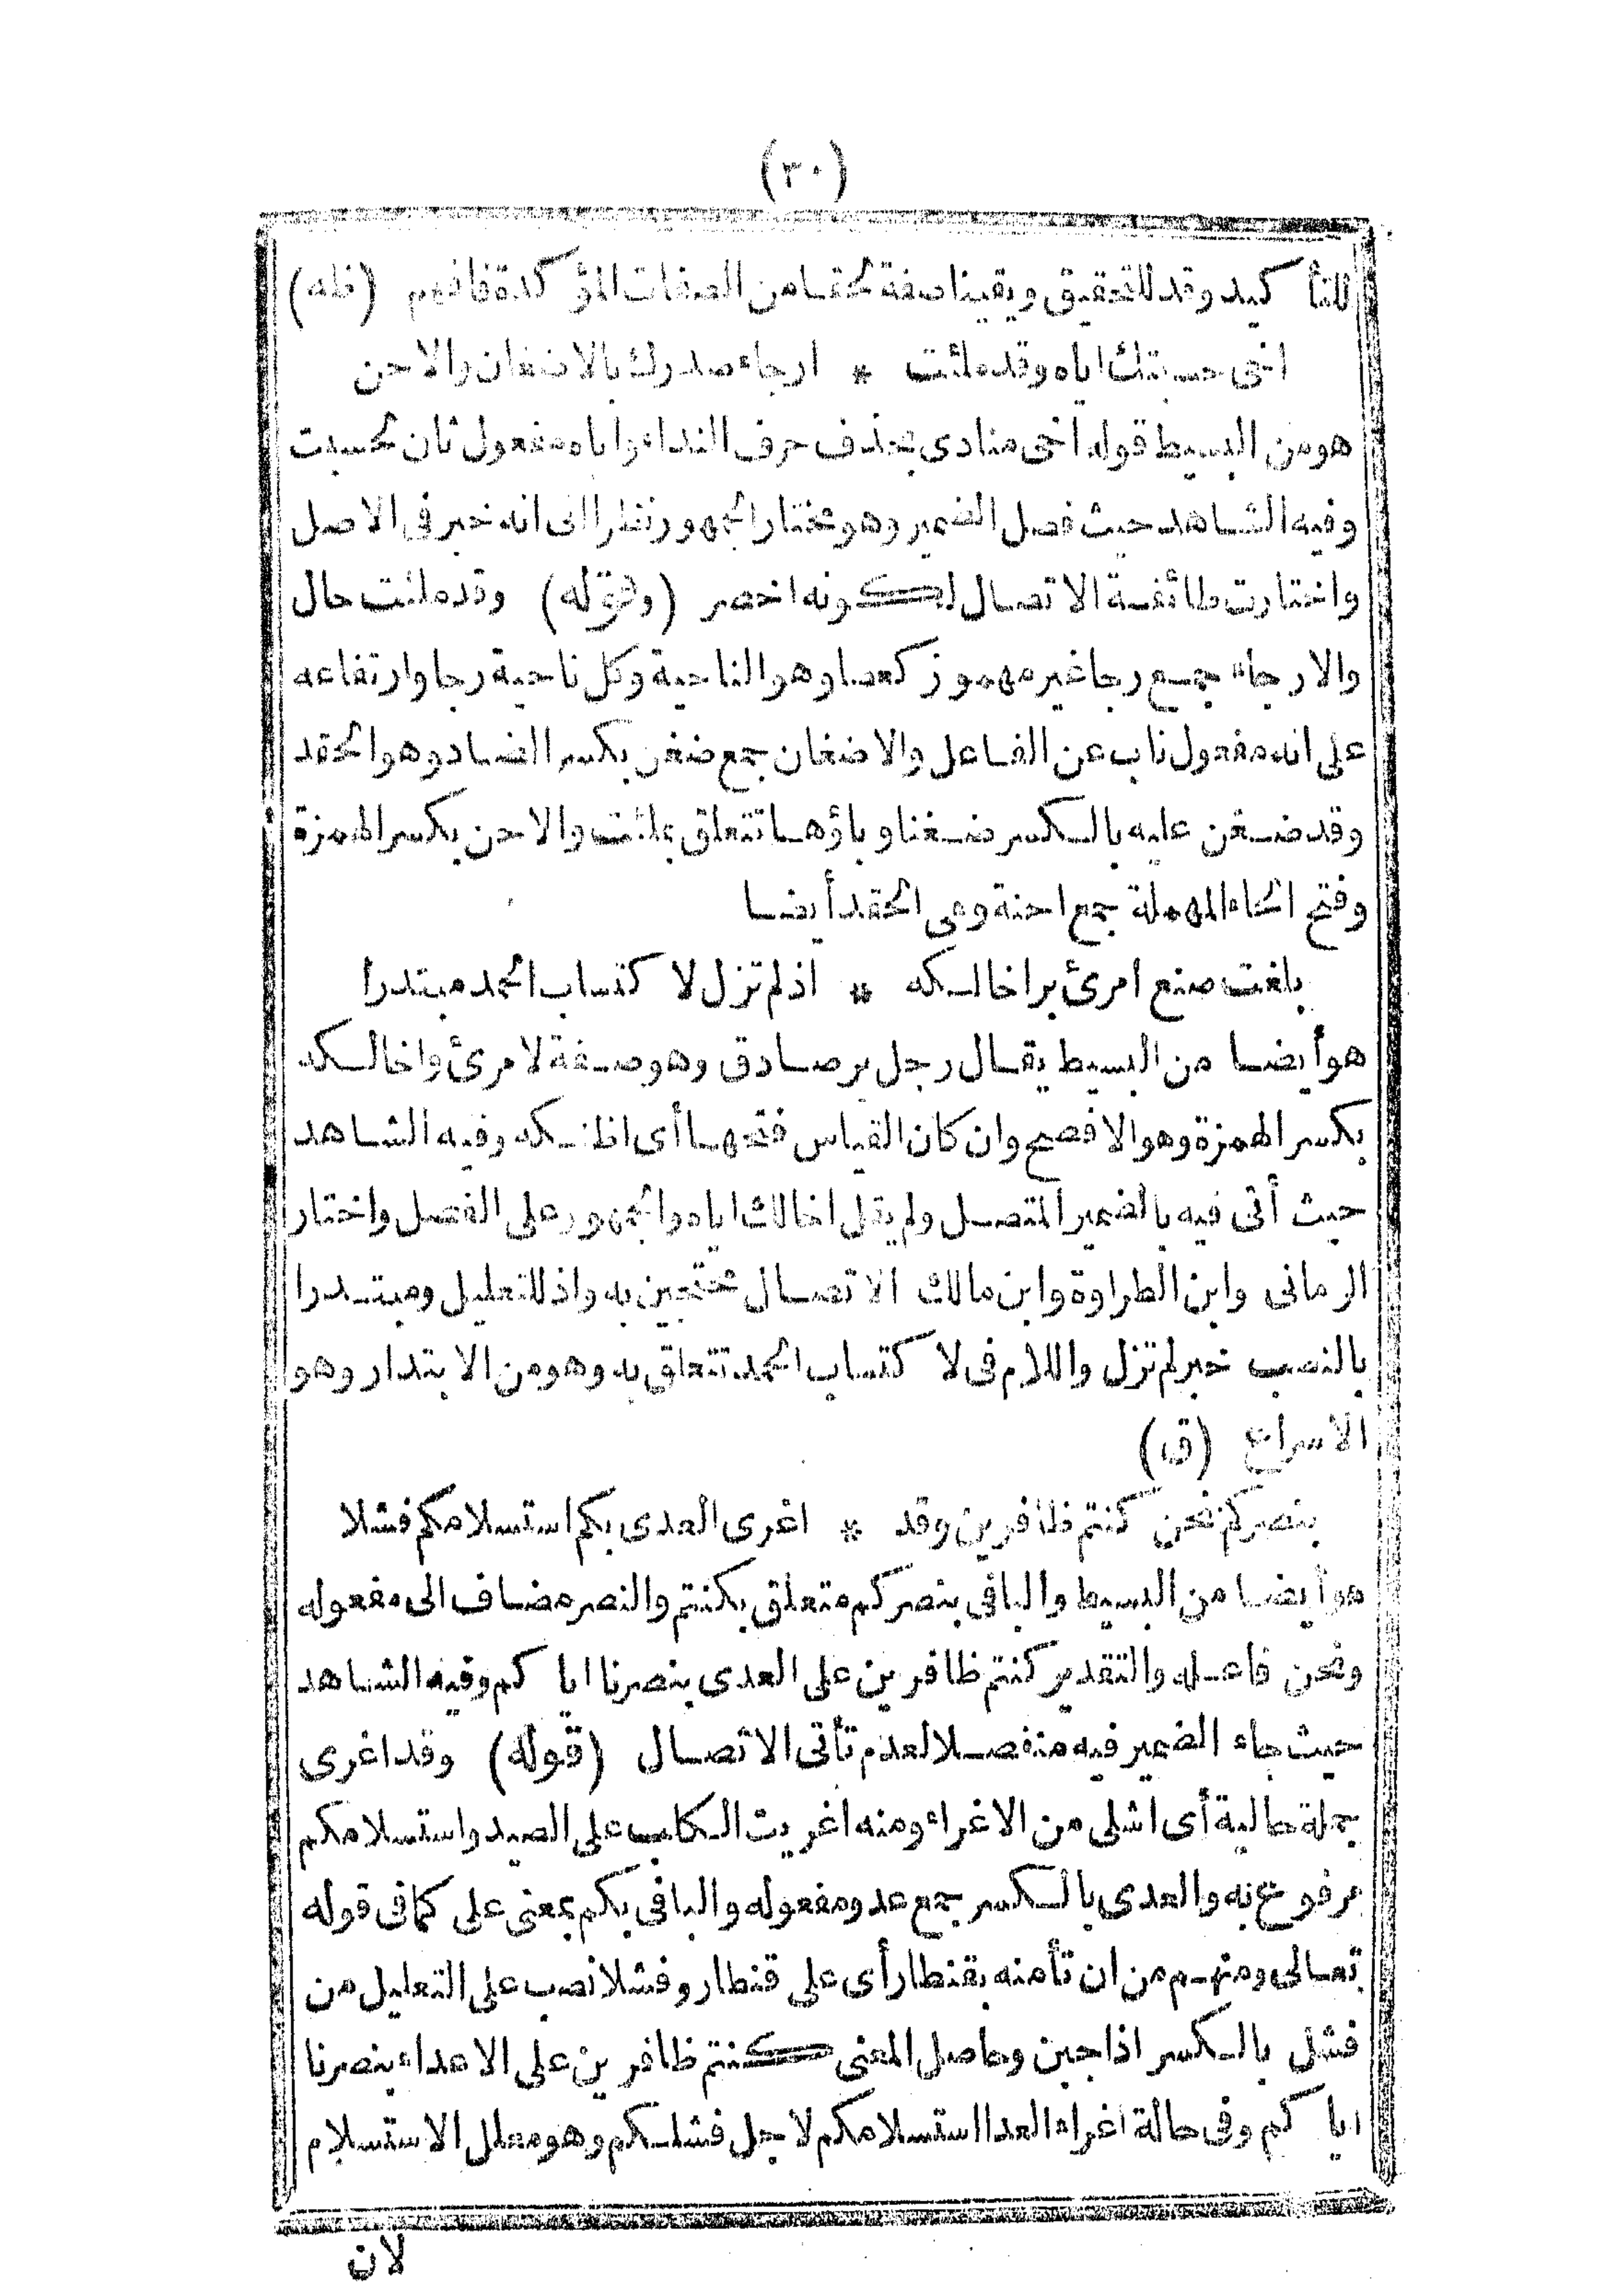 (٣٠)
للتأكيد وقد للتحقيق ويقينا صفة لحقا من الصفات المؤكدة فافهم (ظه)
اخى حسبتك اياه وقد ملئت * ارجاء صدرك بالاضغان والاحن
هو من البسيط قوله اخى منادى بحذف حرف النداء واياه مفعول ثان لحسبت
وفيه الشاهد حيث فصل الضمير وهو مختار الجمهور نظرا الى انه خبر فى الاصل
واختارت طائفة الاتصال لكونه اخصر (وقوله) وقد ملئت حال
والارجاء جمع رجا غير مهموز كعصا وهو الناحية وكل ناحية رجا وارتفاعه
على انه مفعول ناب عن الفاعل والاضغان جمع ضغن بكسر الضاد وهو الحقد
وقد ضغن عليه بالكسر ضغنا وباؤها تتعلق بملئت والاحن بكسر الهمزة
وفتح الحاء المهملة جمع احنة وهى الحقد أيضا
بلغت صنع امرئ بر اخالكه * اذ لم تزل لاكتساب الحمد مبتدرا
هو أيضا من البسيط يقال رجل بر صادق وهو صفة لامرئ واخالكه
بكسر الهمزة وهو الافصح وان كان القياس فتحها أى اظنكه وفيه الشاهد
حيث أتى فيه بالضمير المتصل ولم يقل اخالك اياه والجمهور على الفصل واختار
الرمانى وابن الطراوة وابن مالك الاتصال محتجين به واذ للتعليل ومبتدرا
بالنصب خبر لم تزل واللام فى لاكتساب الحمد تتعلق به وهو من الابتدار وهو
الاسراع (ق)
بنصركم نحن كنتم ظافرين وقد * اغرى العدى بكم استسلامكم فشلا
هو أيضا من البسيط والبا فى بنصركم متعلق بكنتم والنصر مضاف الى مفعوله
ونحن فاعله والتقدير كنتم ظافرين على العدى بنصرنا اياكم وفيه الشاهد
حيث جاء الضمير فيه منفصلا لعدم تأتى الاتصال (قوله) وقد اغرى
جملة حالية أى اشلى من الاغراء ومنه اغريت الكلب على الصيد واستسلامكم
مرفوع به والعدى بالكسر جمع عدو مفعوله والبا فى بكم بمعنى على كما فى قوله
تعالى ومنهم من ان تأمنه بقنطار أى على قنطار وفشلا نصب على التعليل من
فشل بالكسر اذا جبن وحاصل المعنى كنتم ظافرين على الاعداء بنصرنا
اياكم وفى حالة اغراء العدا استسلامكم لاجل فشلكم وهو معلل الاستسلام
لان